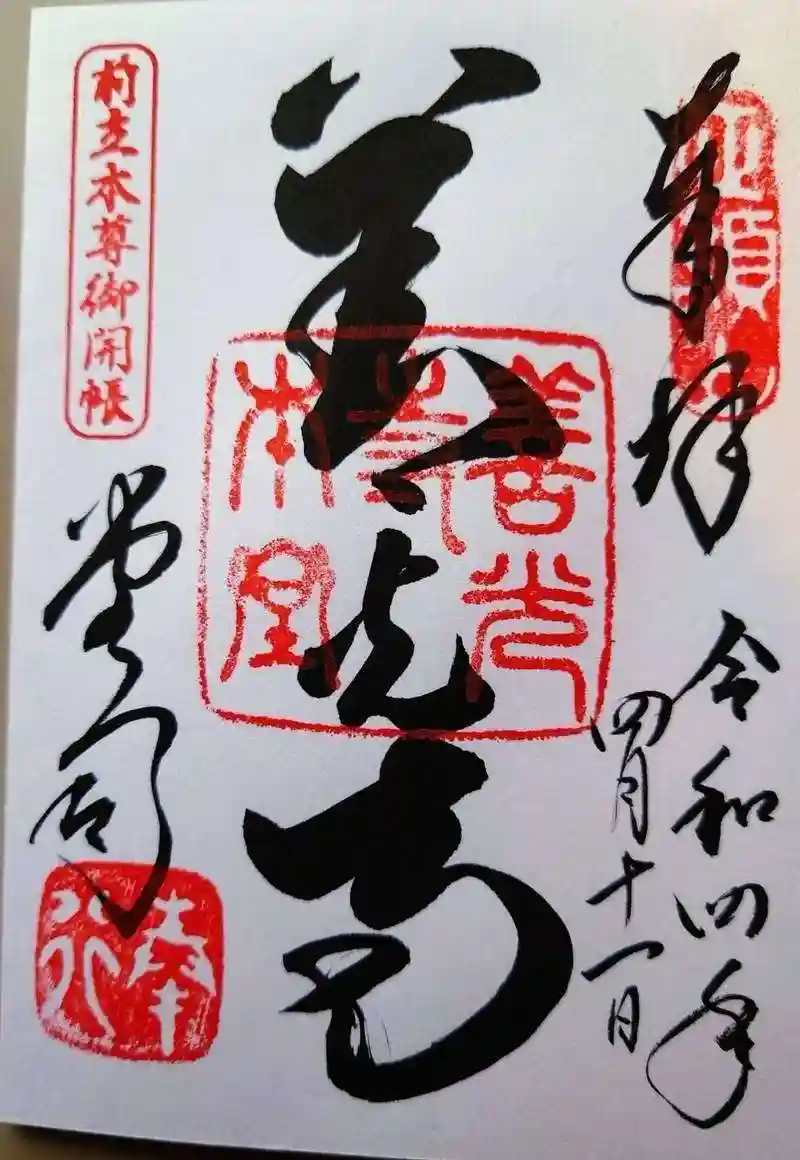 奉拝
令和四年
四月十一日
善光寺
善光
寺
本堂
前立本尊御開帳
堂司
奉行